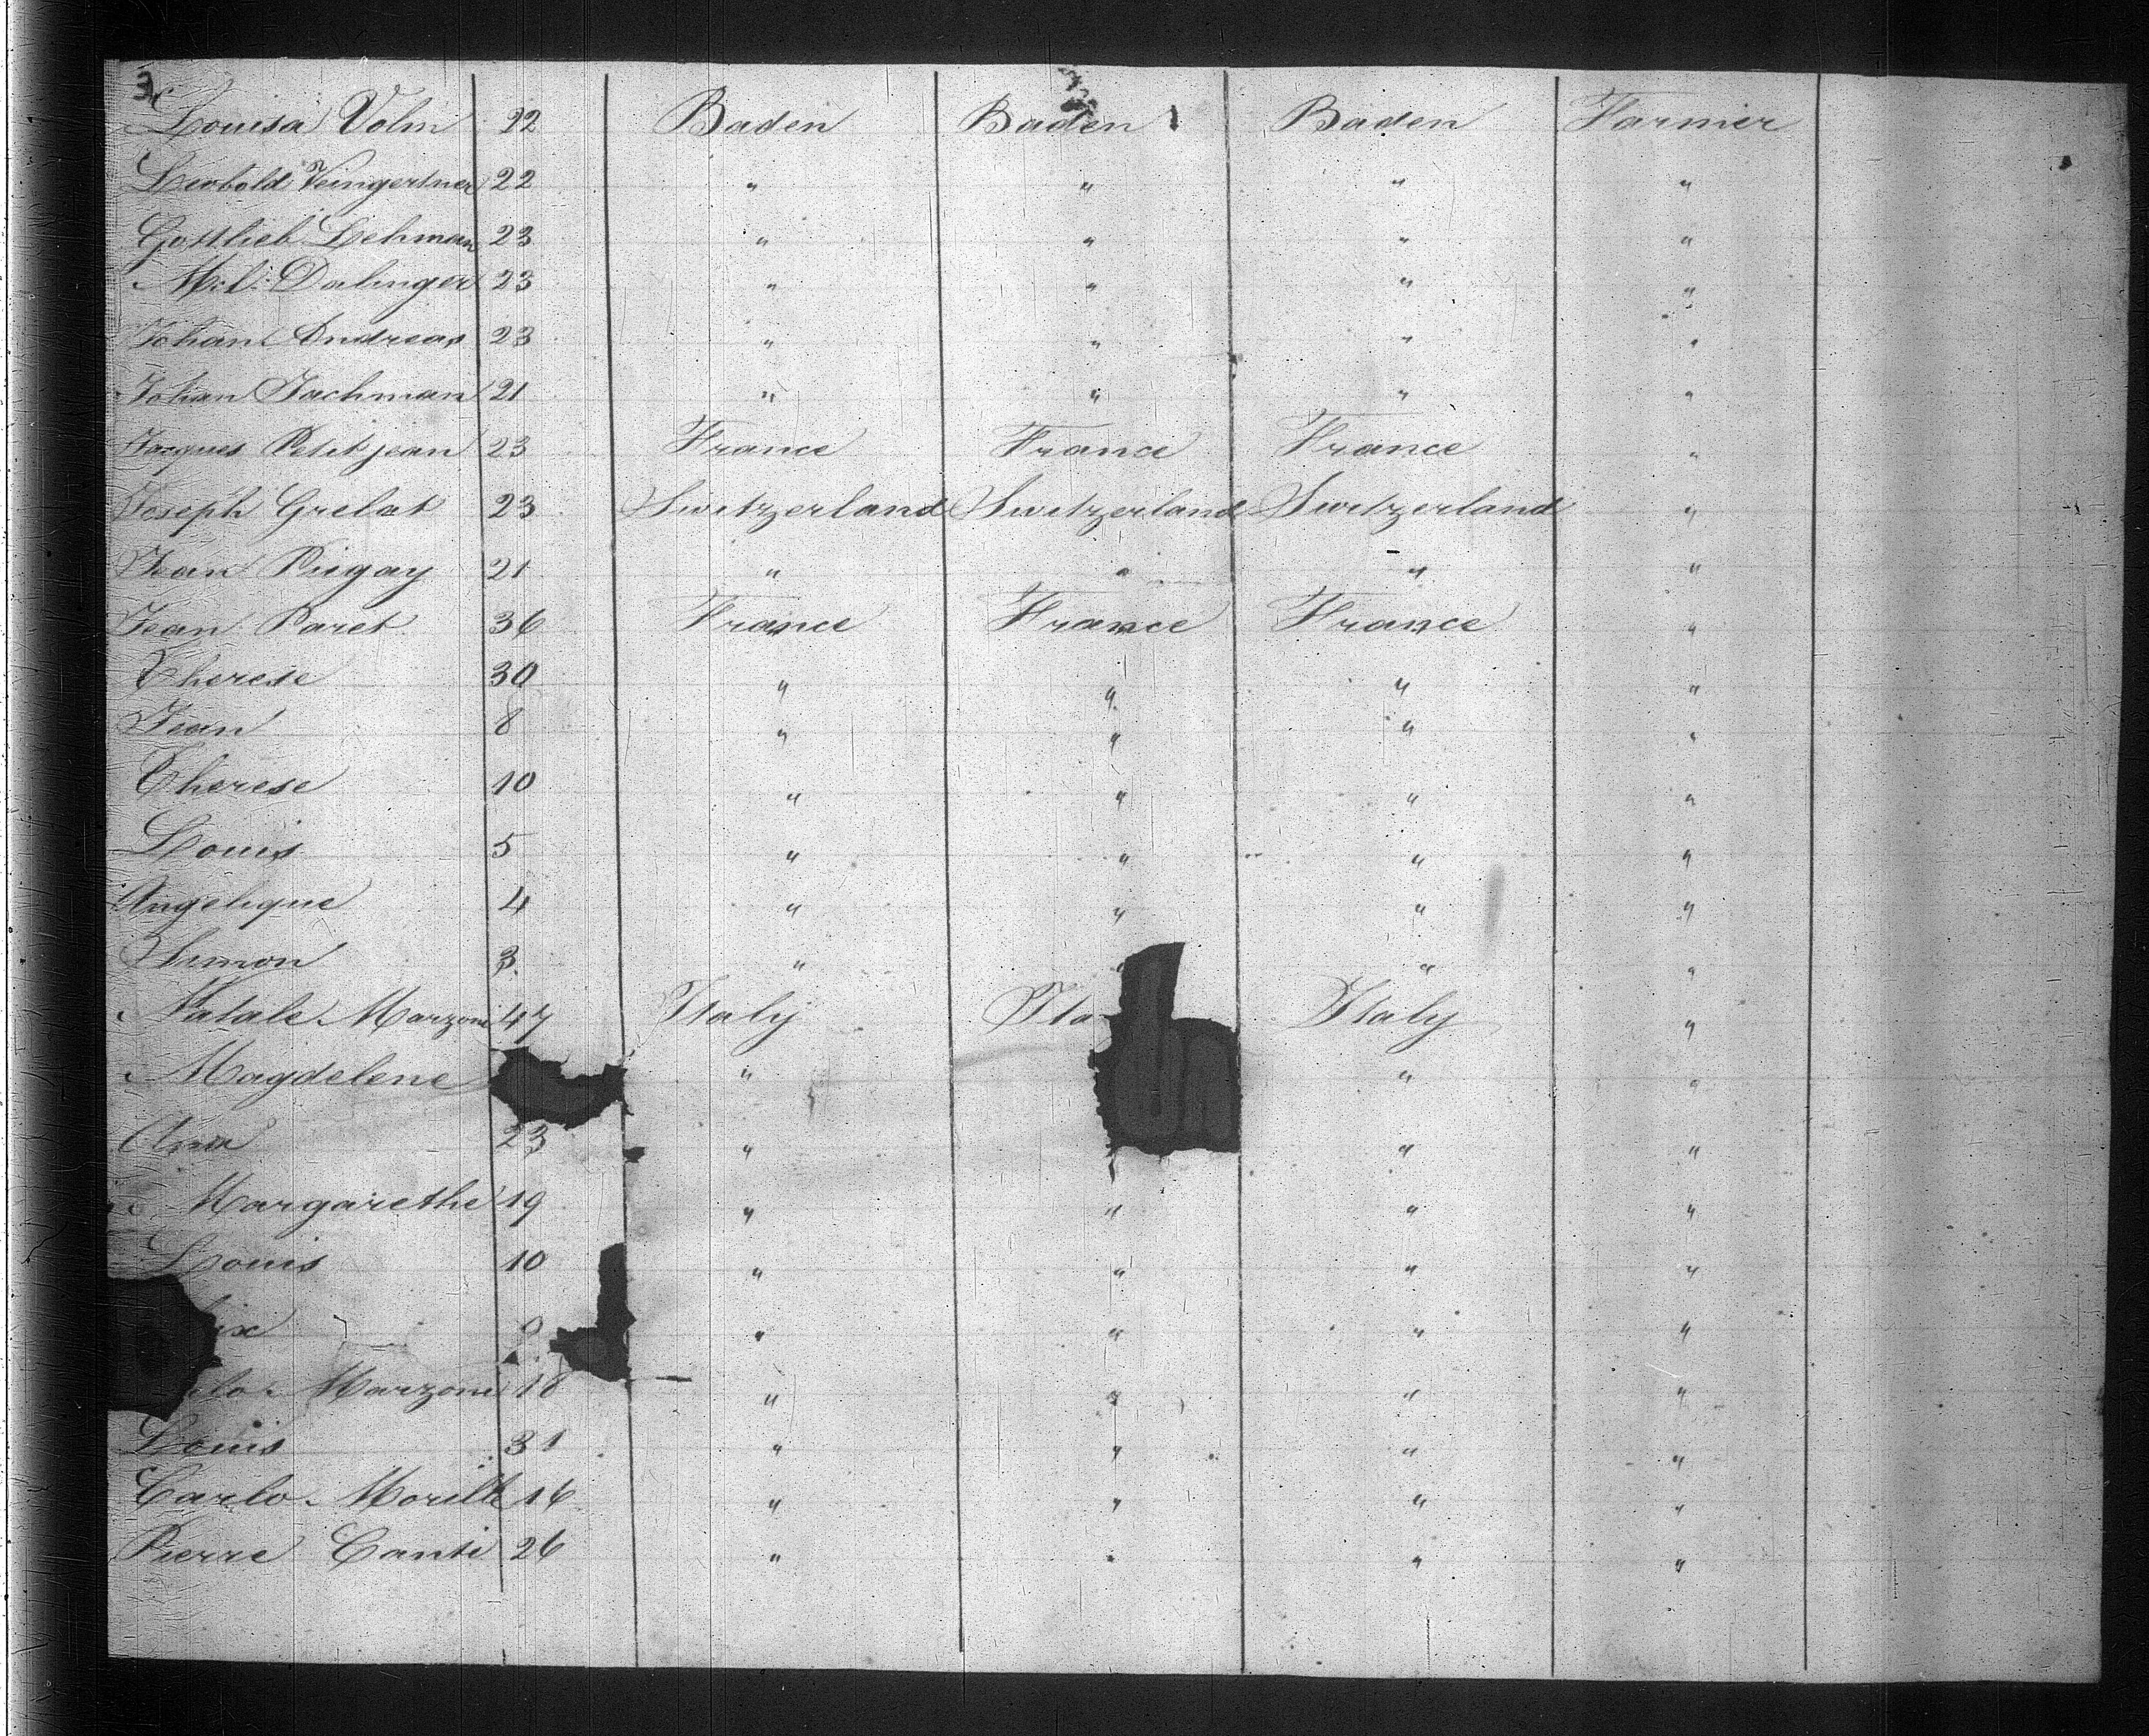 3
Louisa Volm 22 Baden Baden Baden Farmer
Leobold Veingertner 22 " " " "
Gottlieb Lehman 23 " " " "
Dalinger 23 " " " "
Johan Andreas 23 " " " "
Johan Jachman 21 " " " "
Jacques Petitjean 23 France France France "
Joseph Grelat 23 Switzerland Switzerland Switzerland "
Jean Pigay 21 " " " "
Jean Paret 36 France France France "
Therese 30 " " " "
Jean 8 " " " "
Therese 10 " " " "
Louis 5 " " " "
Angelique 4 " " " "
Simon 3 " " " "
Natale Marzoni 47 Italy Ita Italy "
Magdelene " " "
Ana 23 " " "
Margarethe 19 " " " "
Louis 10 " " " "
ix " " " "
lo Marzoni 18 " " " "
Louis 31 " " " "
Carlo Morilli 16 " " " "
Pierre Canti 26 " " " "